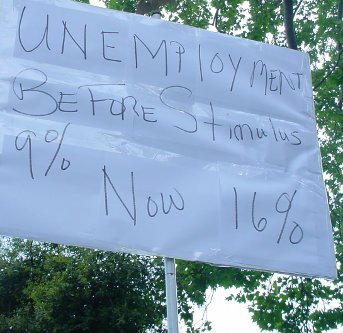 UNEMPlOYMENT
BEFORE Stimulus
9%
Now 16%